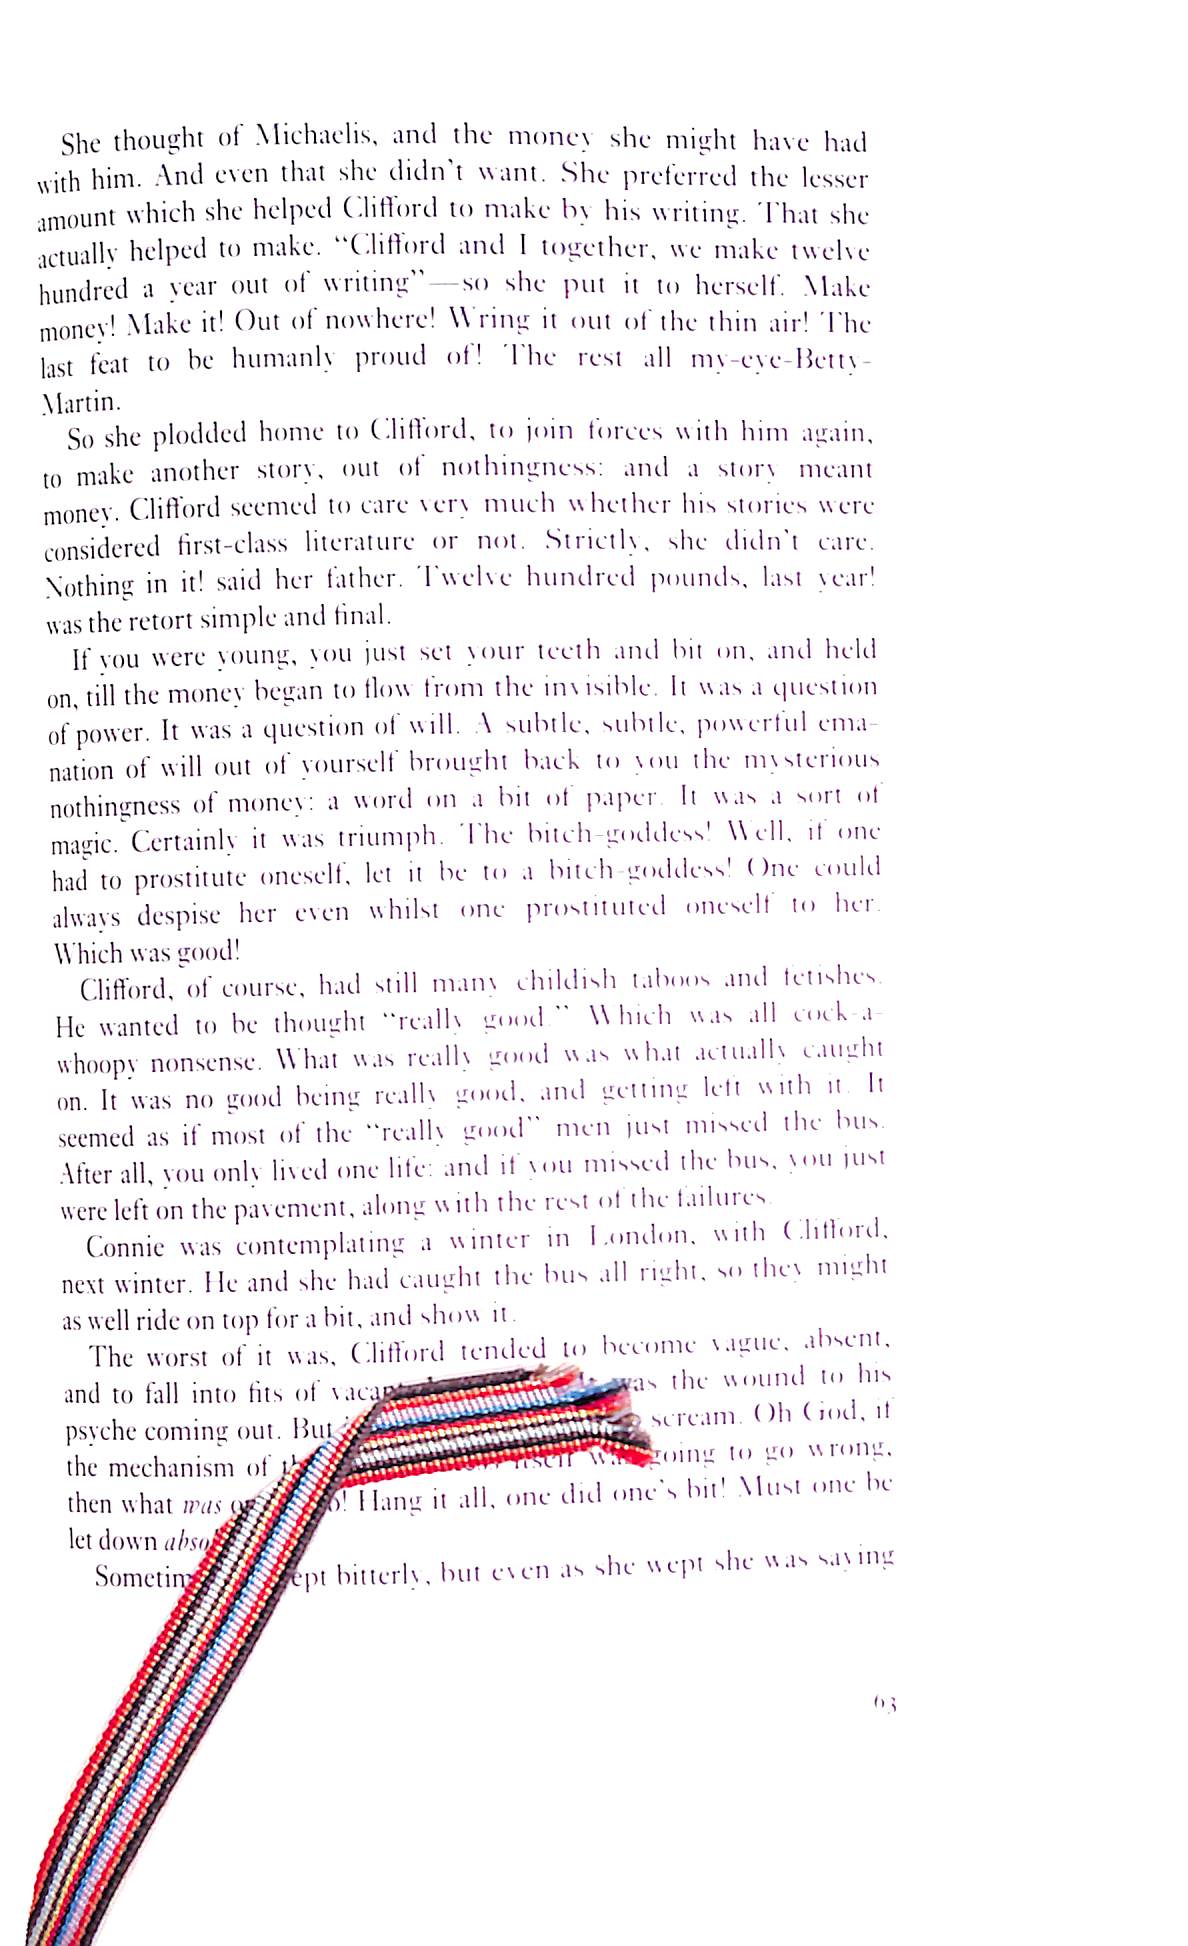 She thought of Michaelis, and the money she might have had
with him. And even that she didn't want. She preferred the lesser
amount which she helped Clifford to make by his writing. That she
actually helped to make. “Clifford and I together, we make twelve
hundred a year out of writing”—so she put it to herself. Make
money! Make it! Out of nowhere! Wring it out of the thin air! The
last feat to be humanly proud of! The rest all my-eye-Betty-
Martin.
So she plodded home to Clifford, to join forces with him again,
to make another story, out of nothingness: and a story meant
money. Clifford seemed to care very much whether his stories were
considered first-class literature or not. Strictly, she didn't care.
Nothing in it! said her father. Twelve hundred pounds, last year!
was the retort simple and final.
If you were young, you just set your teeth and bit on, and held
on, till the money began to flow from the invisible. It was a question
of power. It was a question of will. A subtle, subtle, powerful ema-
nation of will out of yourself brought back to you the mysterious
nothingness of money: a word on a bit of paper. It was a sort of
magic. Certainly it was triumph. The bitch-goddess! Well, if one
had to prostitute oneself, let it be to a bitch-goddess! One could
always despise her even whilst one prostituted oneself to her.
Which was good!
Clifford, of course, had still many childish taboos and fetishes.
He wanted to be thought “really good.” Which was all cock-a-
whoopy nonsense. What was really good was what actually caught
on. It was no good being really good, and getting left with it. It
seemed as if most of the “really good” men just missed the bus.
After all, you only lived one life: and if you missed the bus, you just
were left on the pavement, along with the rest of the failures.
Connie was contemplating a winter in London, with Clifford,
next winter. He and she had caught the bus all right, so they might
as well ride on top for a bit, and show it.
The worst of it was, Clifford tended to become vague, absent,
and to fall into fits of was the wound to his
psyche coming out. But scream. Oh God, if
the mechanism of itself was going to go wrong,
then what was Hang it all, one did one's bit! Must one be
let down
bitterly, but even as she wept she was saying
63